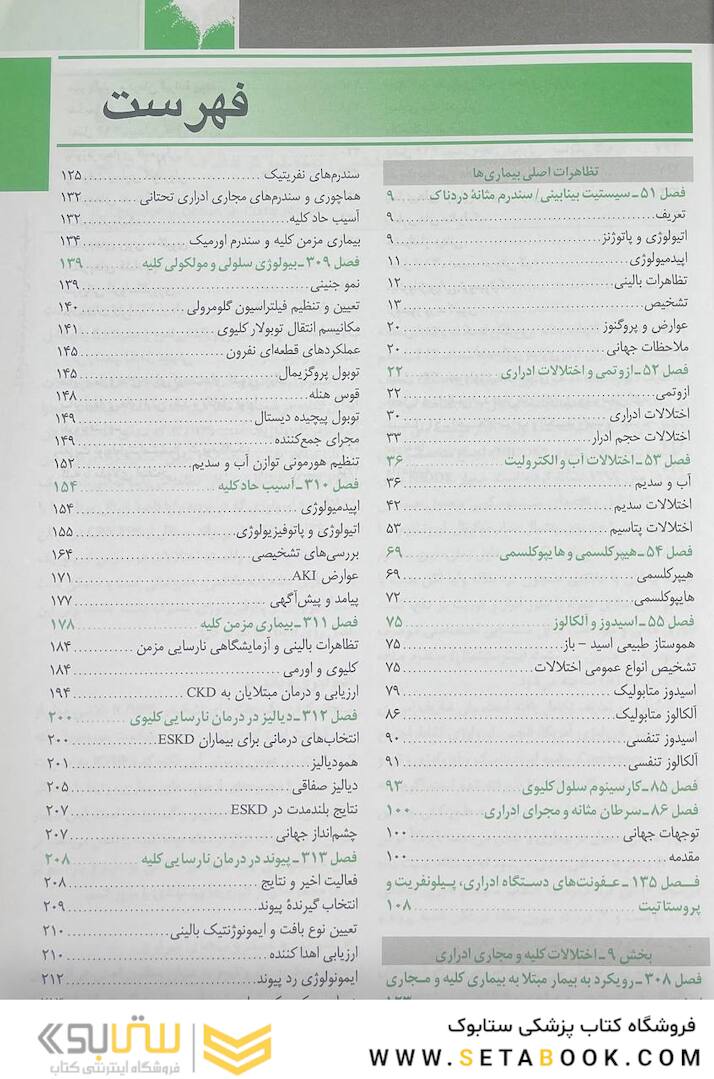 فهرست
تظاهرات اصلی بیماری‌ها
فصل ۵۱ ـ سیستیت بینابینی/ سندرم مثانهٔ دردناک ۹
تعریف ........ ۹
اتیولوژی و پاتوژنز ........ ۹
اپیدمیولوژی ........ ۱۱
تظاهرات بالینی ........ ۱۲
تشخیص ........ ۱۳
عوارض و پروگنوز ........ ۲۰
ملاحظات جهانی ........ ۲۰
فصل ۵۲ ـ ازوتمی و اختلالات ادراری ........ ۲۲
ازوتمی ........ ۲۲
اختلالات ادراری ........ ۳۰
اختلالات حجم ادرار ........ ۳۳
فصل ۵۳ ـ اختلالات آب و الکترولیت ........ ۳۶
آب و سدیم ........ ۳۶
اختلالات سدیم ........ ۴۲
اختلالات پتاسیم ........ ۵۳
فصل ۵۴ ـ هیپرکلسمی و هایپوکلسمی ........ ۶۹
هیپرکلسمی ........ ۶۹
هایپوکلسمی ........ ۷۲
فصل ۵۵ ـ اسیدوز و آلکالوز ........ ۷۵
هموستاز طبیعی اسید - باز ........ ۷۵
تشخیص انواع عمومی اختلالات ........ ۷۵
اسیدوز متابولیک ........ ۷۹
آلکالوز متابولیک ........ ۸۶
اسیدوز تنفسی ........ ۹۰
آلکالوز تنفسی ........ ۹۱
فصل ۸۵ ـ کارسینوم سلول کلیوی ........ ۹۳
فصل ۸۶ ـ سرطان مثانه و مجرای ادراری ........ ۱۰۰
توجهات جهانی ........ ۱۰۰
مقدمه ........ ۱۰۰
فصل ۱۳۵ ـ عفونت‌های دستگاه ادراری، پیلونفریت و
پروستاتیت ........ ۱۰۸
بخش ۹ ـ اختلالات کلیه و مجاری ادراری
فصل ۳۰۸ ـ رویکرد به بیمار مبتلا به بیماری کلیه و مجاری
۱۲۳
سندرم‌های نفریتیک ........ ۱۲۵
هماچوری و سندرم‌های مجاری ادراری تحتانی ........ ۱۳۲
آسیب حاد کلیه ........ ۱۳۲
بیماری مزمن کلیه و سندرم اورمیک ........ ۱۳۴
فصل ۳۰۹ ـ بیولوژی سلولی و مولکولی کلیه ........ ۱۳۹
نمو جنینی ........ ۱۳۹
تعیین و تنظیم فیلتراسیون گلومرولی ........ ۱۴۰
مکانیسم انتقال توبولار کلیوی ........ ۱۴۱
عملکردهای قطعه‌ای نفرون ........ ۱۴۵
توبول پروگزیمال ........ ۱۴۵
قوس هنله ........ ۱۴۸
توبول پیچیده دیستال ........ ۱۴۹
مجرای جمع‌کننده ........ ۱۴۹
تنظیم هورمونی توازن آب و سدیم ........ ۱۵۲
فصل ۳۱۰ ـ آسیب حاد کلیه ........ ۱۵۴
اپیدمیولوژی ........ ۱۵۴
اتیولوژی و پاتوفیزیولوژی ........ ۱۵۵
بررسی‌های تشخیصی ........ ۱۶۴
عوارض AKI ........ ۱۷۱
پیامد و پیش‌آگهی ........ ۱۷۷
فصل ۳۱۱ ـ بیماری مزمن کلیه ........ ۱۷۸
تظاهرات بالینی و آزمایشگاهی نارسایی مزمن ۱۸۴
کلیوی و اورمی ........ ۱۸۴
ارزیابی و درمان مبتلایان به CKD ........ ۱۹۴
فصل ۳۱۲ ـ دیالیز در درمان نارسایی کلیوی ........ ۲۰۰
انتخاب‌های درمانی برای بیماران ESKD ........ ۲۰۰
همودیالیز ........ ۲۰۱
دیالیز صفاقی ........ ۲۰۵
نتایج بلندمدت در ESKD ........ ۲۰۷
چشم‌انداز جهانی ........ ۲۰۷
فصل ۳۱۳ ـ پیوند در درمان نارسایی کلیه ........ ۲۰۸
فعالیت اخیر و نتایج ........ ۲۰۸
انتخاب گیرندهٔ پیوند ........ ۲۰۹
تعیین نوع بافت و ایمونوژنتیک بالینی ........ ۲۱۰
ارزیابی اهدا کننده ........ ۲۱۰
ایمونولوژی رد پیوند ........ ۲۱۲
فروشگاه کتاب پزشکی ستابوک
WWW.SETABOOK.COM
ستابوک
فروشگاه اینترنتی کتاب